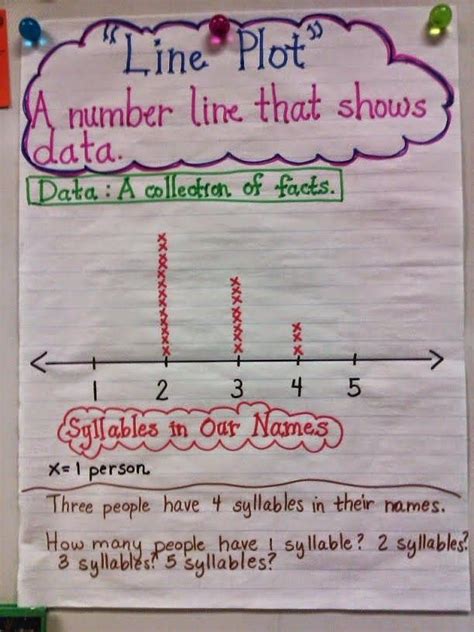 "Line Plot"
A number line that shows
data.
Data: A collection of facts.
1 2 3 4 5
Syllables in Our Names
x=1 person.
Three people have 4 syllables in their names.
How many people have 1 syllable? 2 syllables?
3 syllables? 5 syllables?